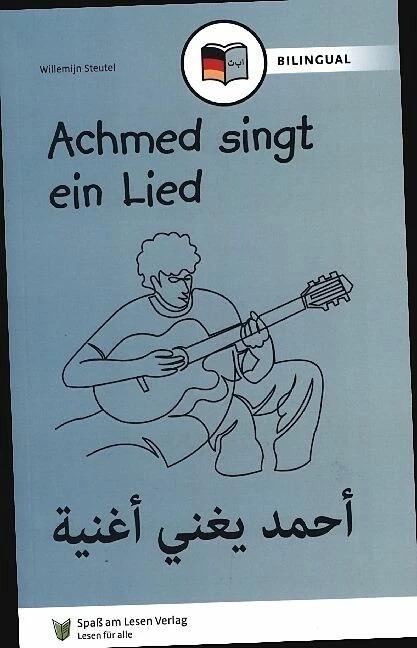 Willemijn Steutel
أ ب ت
BILINGUAL
Achmed singt
ein Lied
أحمد يغني أغنية
Spaß am Lesen Verlag
Lesen für alle